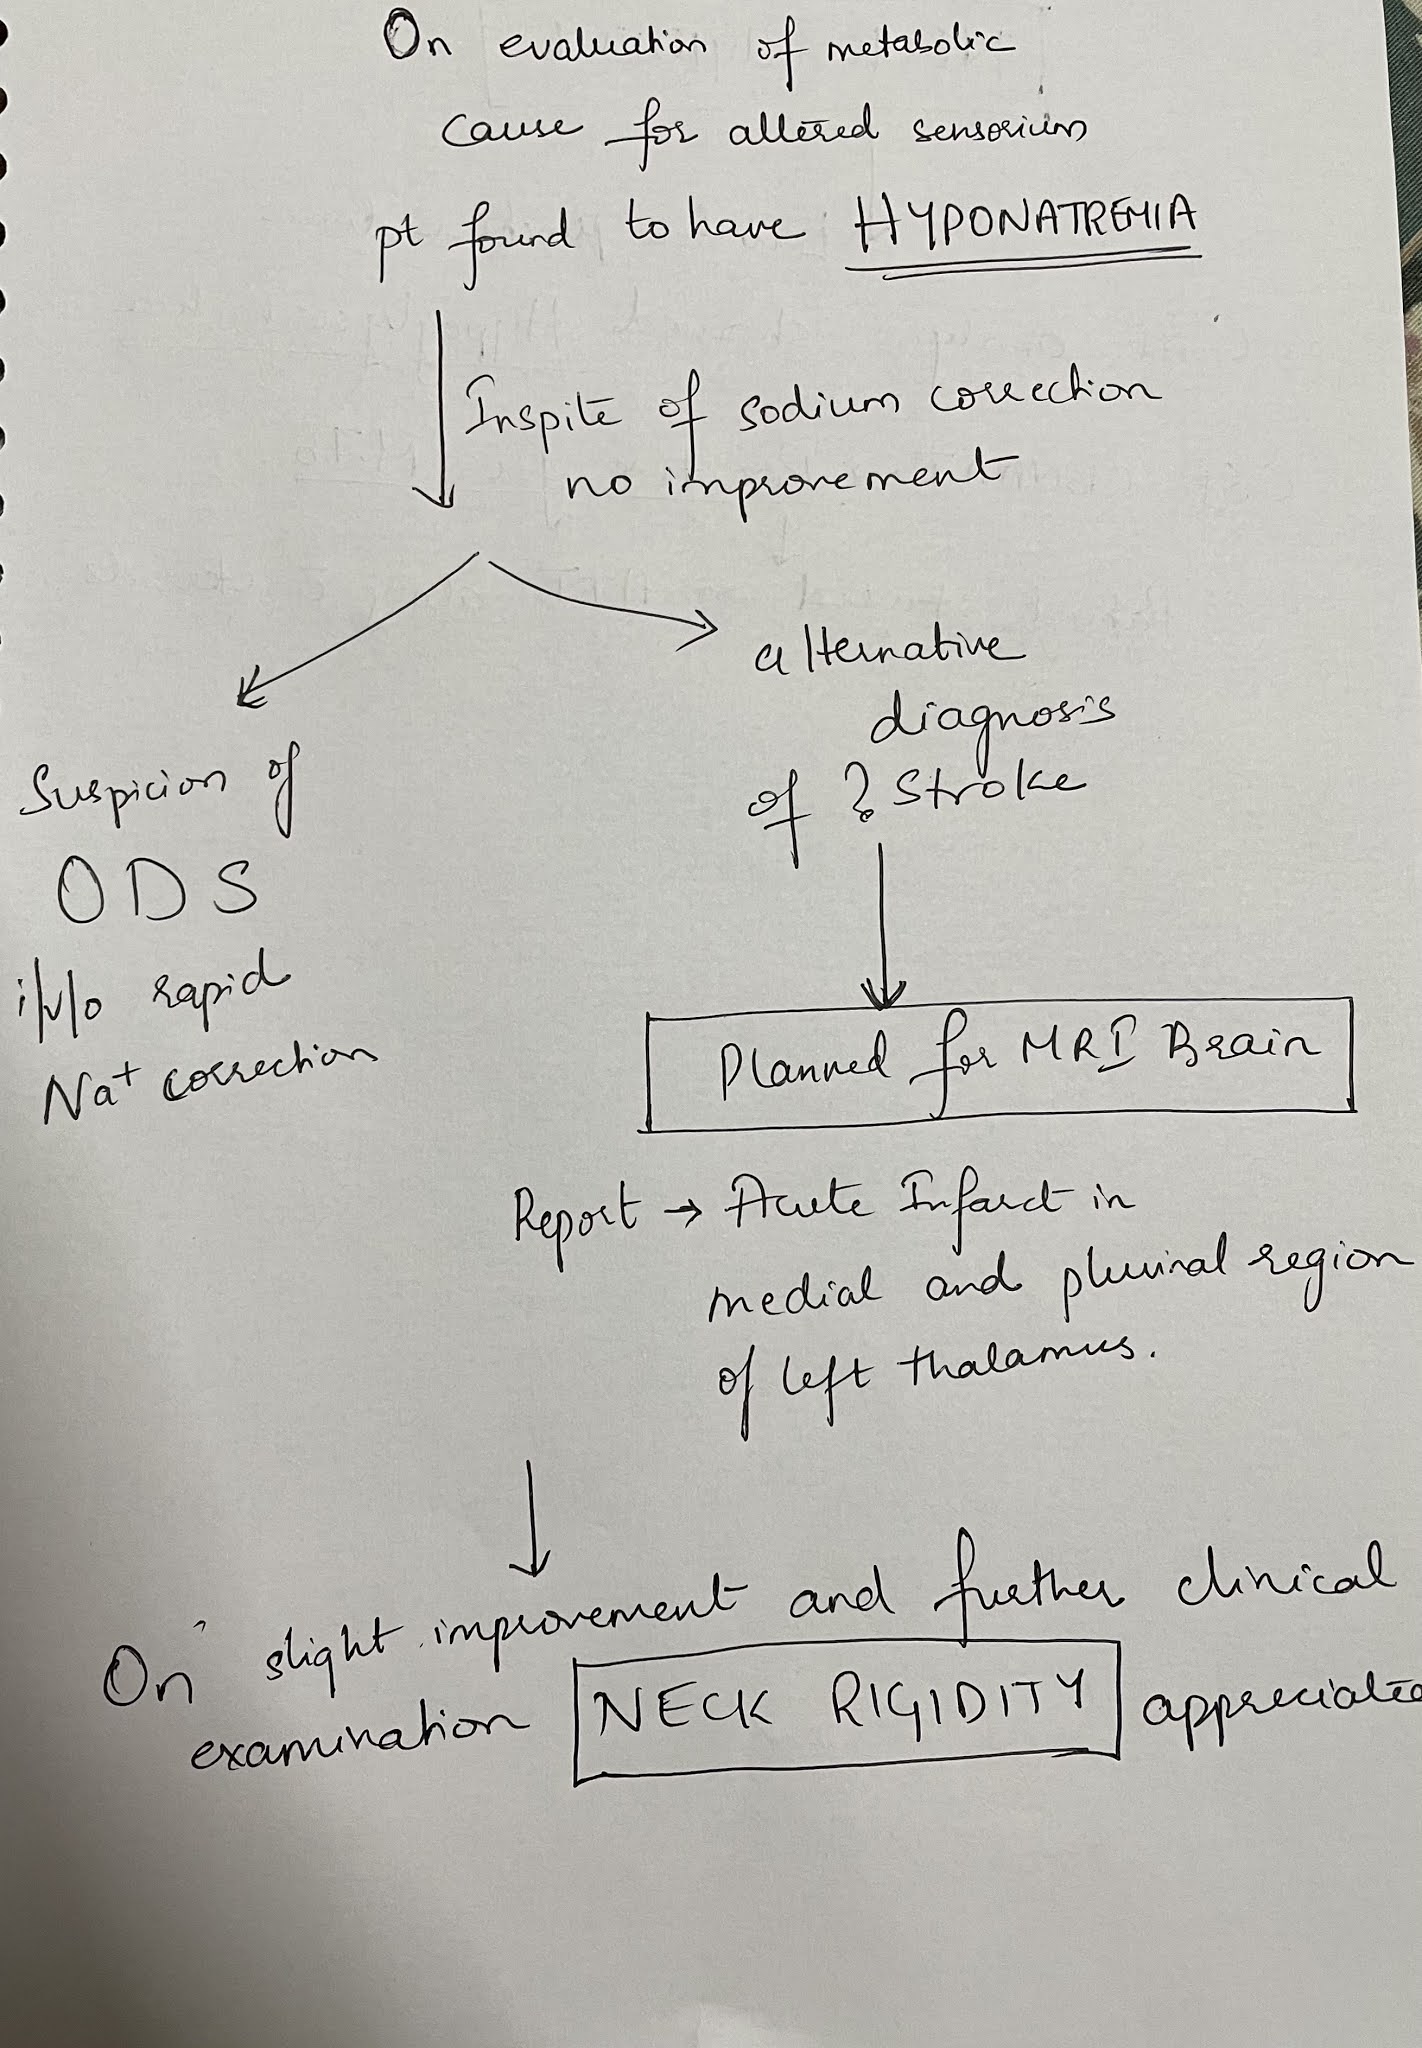 On evaluation of metabolic
cause for altered sensorium
pt found to have HYPONATREMIA
Inspite of sodium correction
no improvement
alternative
diagnosis
of ? Stroke
Suspicion of
ODS
i/v/o rapid
Na+ correction
Planned for MRI Brain
Report → Acute Infarct in
medial and pluvinal region
of left thalamus.
On slight improvement and further clinical
examination NECK RIGIDITY appreciated